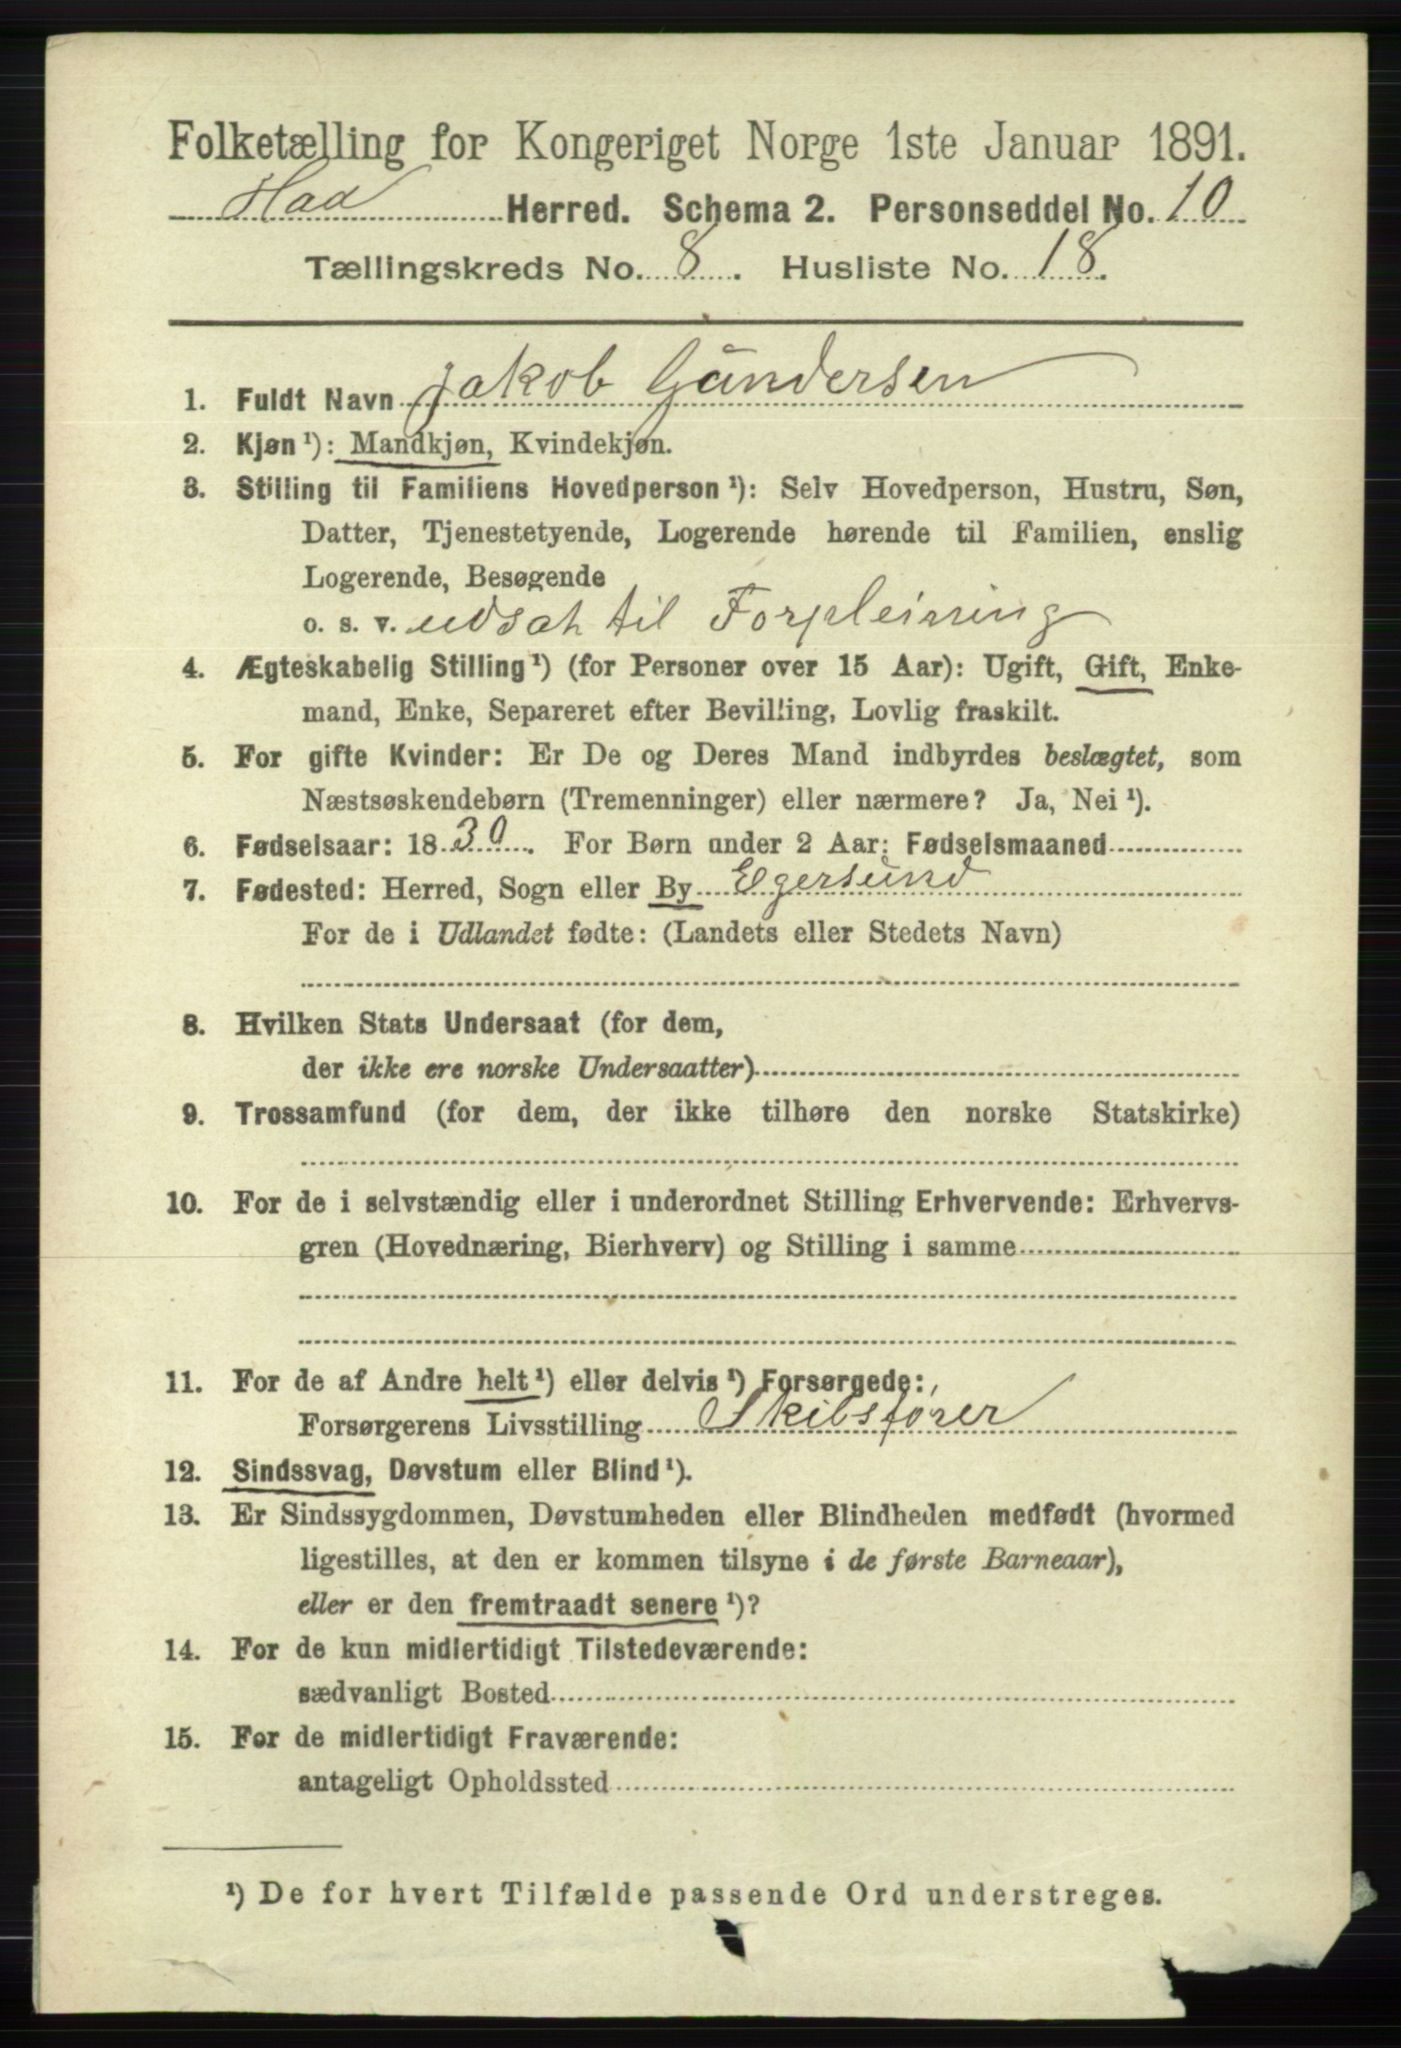 Folketælling for Kongeriget Norge 1ste Januar 1891.
Haa Herred. Schema 2. Personseddel No. 10
Tællingskreds No. 8. Husliste No. 18.
1. Fuldt Navn Jakob Gundersen
2. Kjøn¹): Mandkjøn, Kvindekjøn.
3. Stilling til Familiens Hovedperson¹): Selv Hovedperson, Hustru, Søn,
Datter, Tjenestetyende, Logerende hørende til Familien, enslig
Logerende, Besøgende
o. s. v. udsat til Forpleining
4. Ægteskabelig Stilling¹) (for Personer over 15 Aar): Ugift, Gift, Enke-
mand, Enke, Separeret efter Bevilling, Lovlig fraskilt.
5. For gifte Kvinder: Er De og Deres Mand indbyrdes beslægtet, som
Næstsøskendebørn (Tremenninger) eller nærmere? Ja, Nei¹).
6. Fødselsaar: 1830. For Børn under 2 Aar: Fødselsmaaned
7. Fødested: Herred, Sogn eller By Egersund
For de i Udlandet fødte: (Landets eller Stedets Navn)
8. Hvilken Stats Undersaat (for dem,
der ikke ere norske Undersaatter)
9. Trossamfund (for dem, der ikke tilhøre den norske Statskirke)
10. For de i selvstændig eller i underordnet Stilling Erhvervende: Erhvervs-
gren (Hovednæring, Bierhverv) og Stilling i samme
11. For de af Andre helt¹) eller delvis¹) Forsørgede:
Forsørgerens Livsstilling Skibsfører
12. Sindssvag, Døvstum eller Blind¹).
13. Er Sindssygdommen, Døvstumheden eller Blindheden medfødt (hvormed
ligestilles, at den er kommen tilsyne i de første Barneaar),
eller er den fremtraadt senere¹)?
14. For de kun midlertidigt Tilstedeværende:
sædvanligt Bosted
15. For de midlertidigt Fraværende:
antageligt Opholdssted
¹) De for hvert Tilfælde passende Ord understreges.